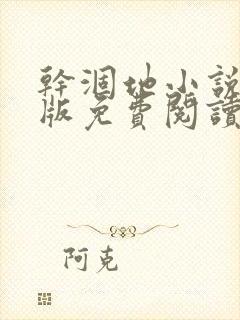 幹涸地小說
版免費閱讀
阿克